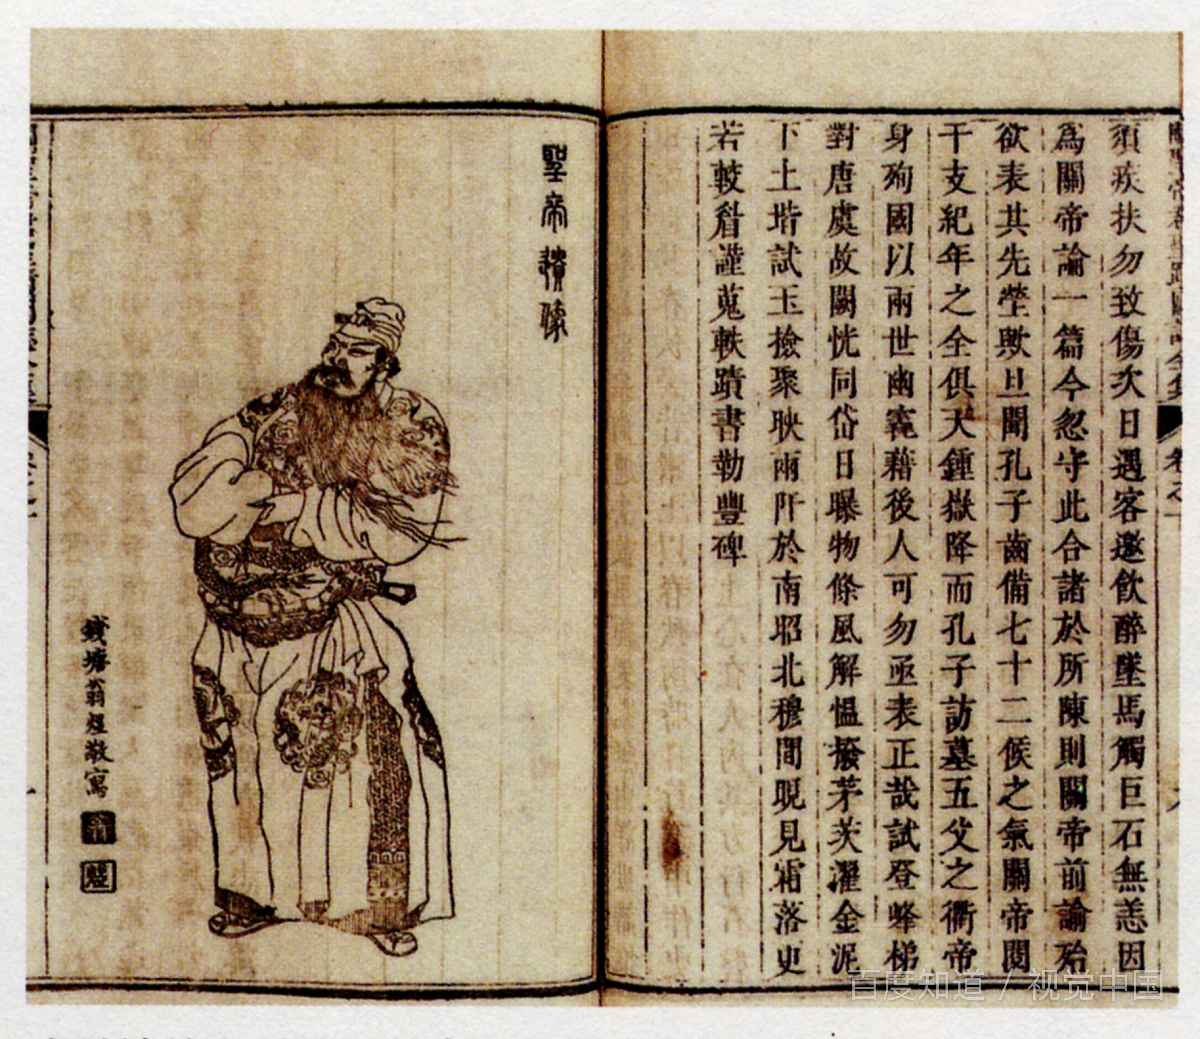 須疾扶勿致傷次日遇客邀飲醉墜馬觸巨石無恙因
為關帝論一篇今忽守此合諸於所陳則關帝前諭殆
欲表其先塋歟且聞孔子齒備七十二候之氣關帝閱
干支紀年之全俱天鍾嶽降而孔子訪墓五父之衢帝
身殉國以兩世幽竁藉後人可勿亟表正哉試登蜂梯
對唐虞故闕恍同岱日曝物條風解慍撥茅茨濯金泥
下土堦試玉撿聚映兩阡於南昭北穆間晛見霜落更
若較眢謹蒐軼蹟書勒豐碑
聖帝遺像
錢塘翁煙敬寫
百度知道 / 视觉中国